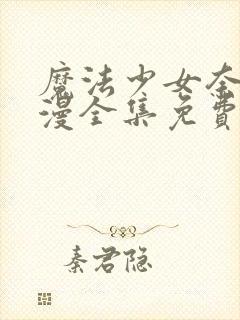 魔法少女奈
漫全集免费
秦君隐